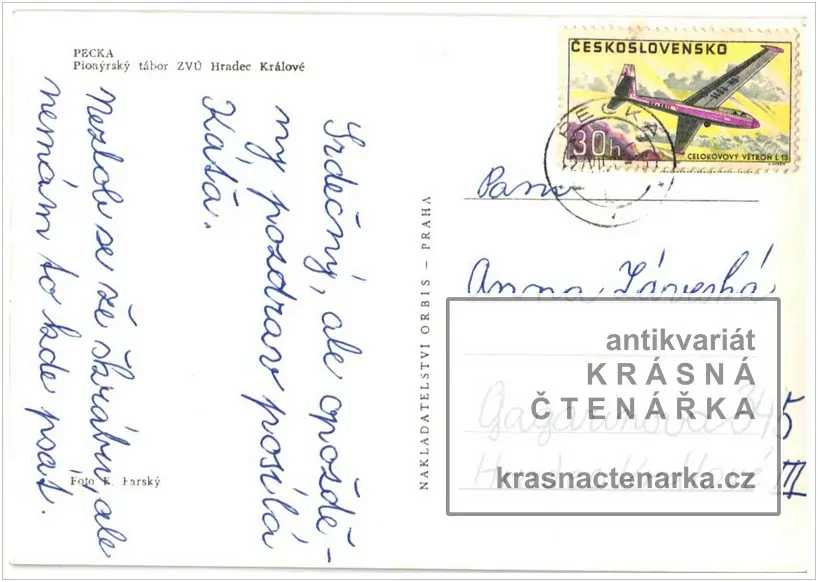 PECKA
Pionýrský tábor ZVÚ Hradec Králové
Srdečný, ale opoždě-
ný pozdrav posílá
Káťa.
Nezlob se že škrábu, ale
nemám to kde psát.
Foto K. Farský
NAKLADATELSTVÍ ORBIS – PRAHA
ČESKOSLOVENSKO
30h
CELOKOVOVÝ VĚTROŇ L 13
PECKA
Paní
Anna
Gagarinova
Hradec Králové
antikvariát
KRÁSNÁ
ČTENÁŘKA
krasnactenarka.cz